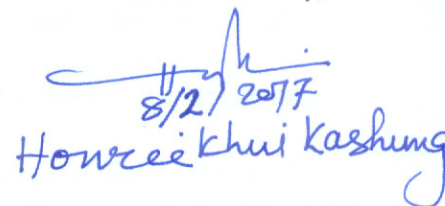 8/2/2017
Honreikhui Kashung